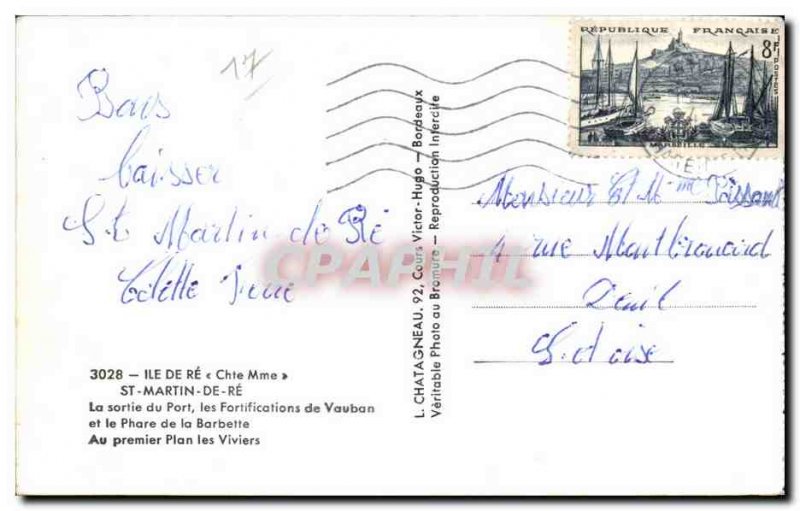 17
Bons
baisser
St Martin de Ré
Colette
3028 — ILE DE RÉ « Chte Mme »
ST-MARTIN-DE-RÉ
La sortie du Port, les Fortifications de Vauban
et le Phare de la Barbette
Au premier Plan les Viviers
L. CHATAGNEAU. 92, Cours Victor-Hugo — Bordeaux
Véritable Photo au Bromure — Reproduction Interdite
RÉPUBLIQUE FRANÇAISE
8F
POSTES
MARSEILLE
Monsieur Et Mme
4 rue Montbrouard
Deuil
S. et oise
CPAPHIL